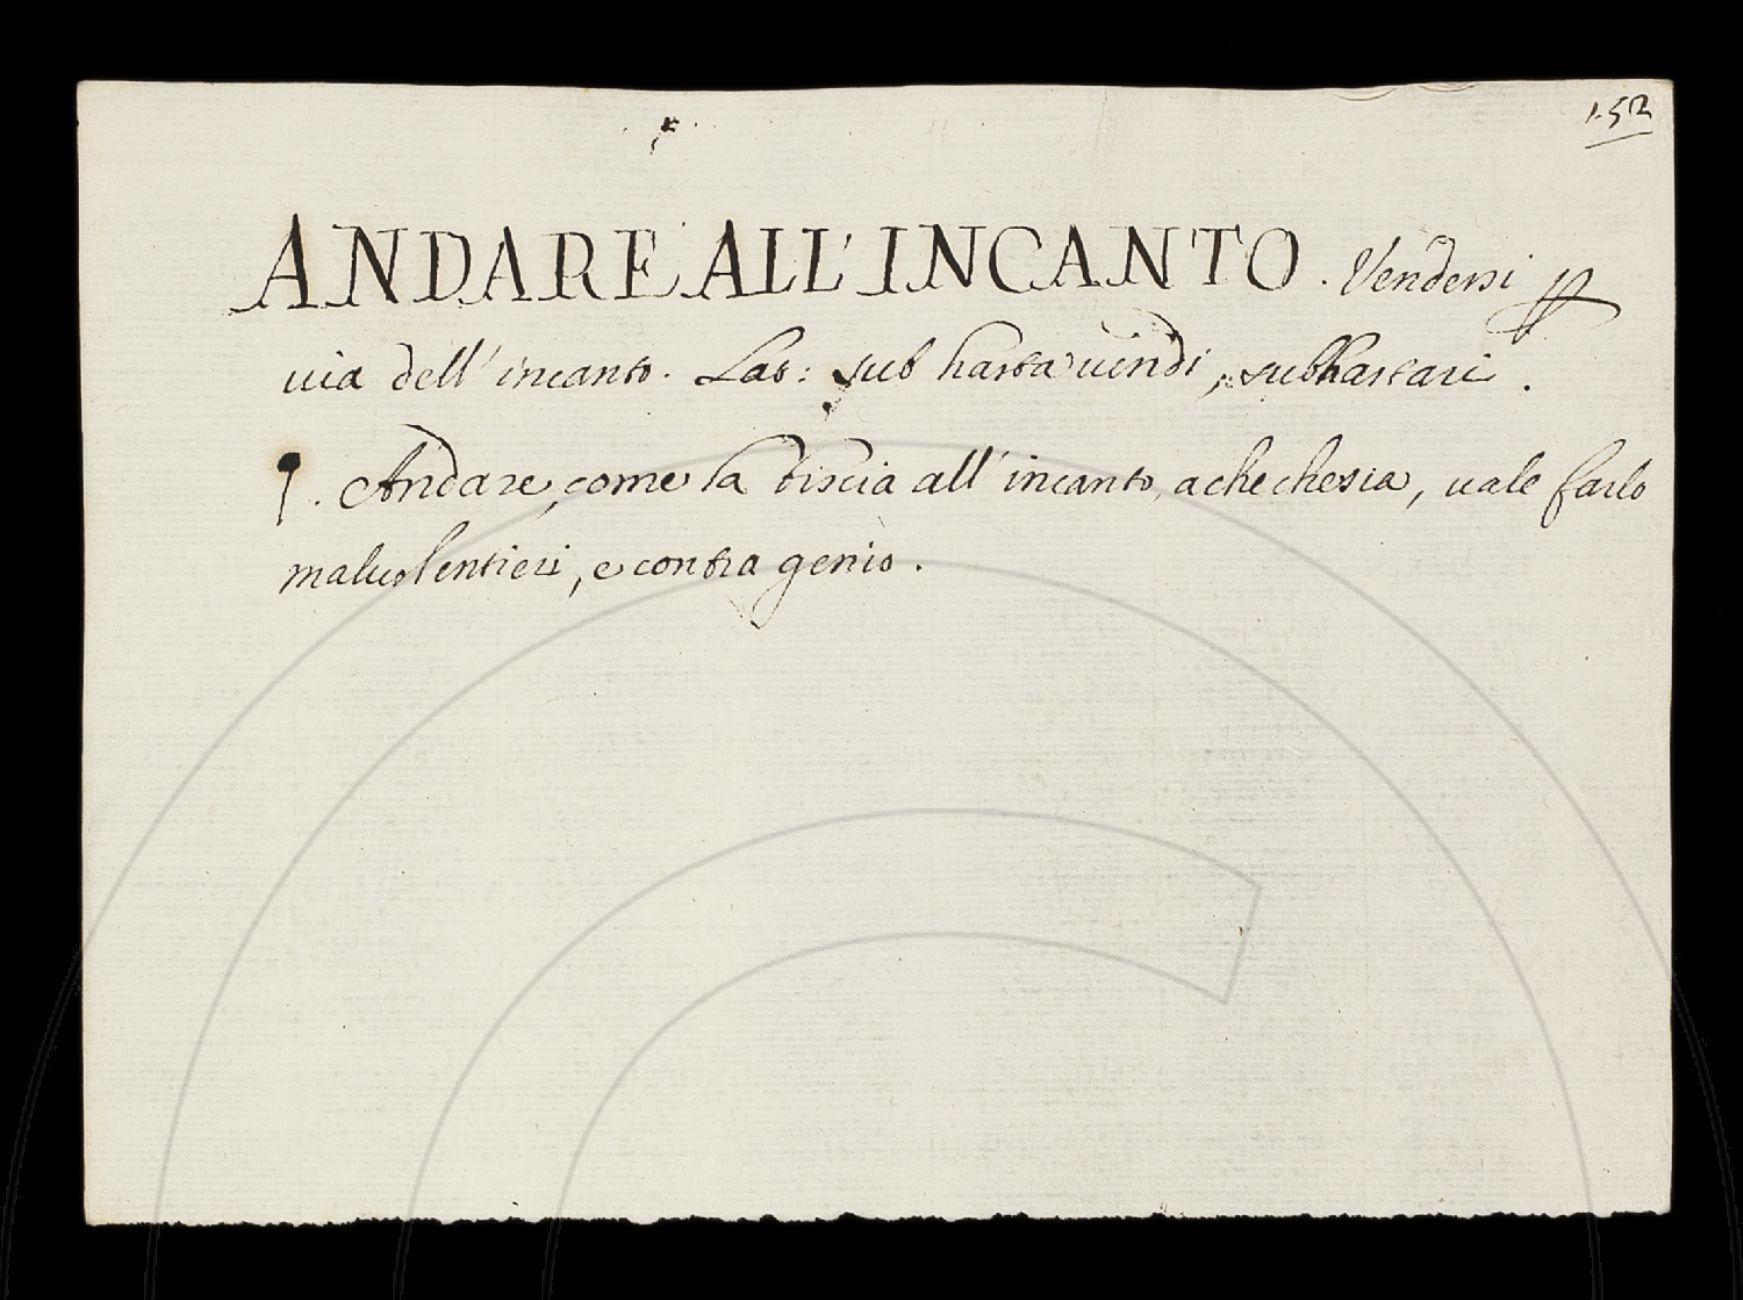 152
ANDARE ALL'INCANTO. Vendersi p
uia dell'incanto. Lat: sub hasta uendi, subhastari.
¶. Andare, come la biscia all'incanto, a che che sia, uale farlo
maluolentieri, e contra genio.